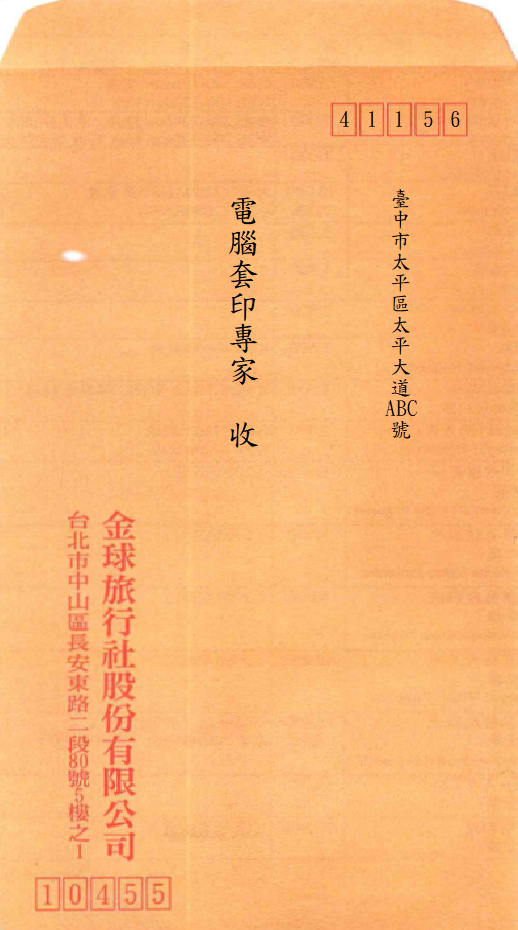 41156
臺中市太平區太平大道ABC號
電腦套印專家 收
金球旅行社股份有限公司
台北市中山區長安東路二段80號5樓之1
10455